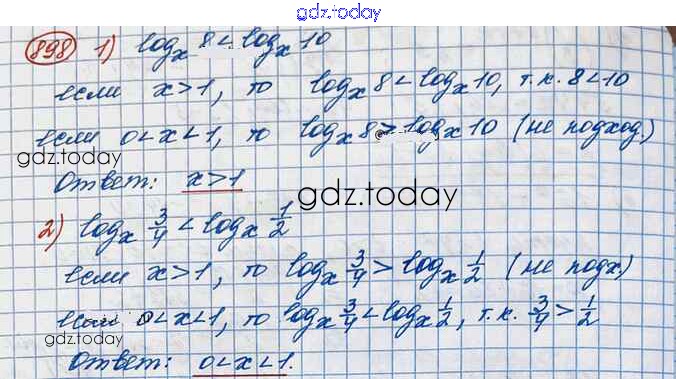 gdz.today
898 1) log_x 8 < log_x 10
если x>1, то log_x 8 < log_x 10, т.к. 8<10
если 0<x<1, то log_x 8 > log_x 10 (не подход.)
gdz.today
Ответ: x>1
gdz.today
2) log_x 3/4 < log_x 1/2
если x>1, то log_x 3/4 > log_x 1/2 (не подх)
если 0<x<1, то log_x 3/4 < log_x 1/2, т.к. 3/4 > 1/2
gdz.today
Ответ: 0<x<1.